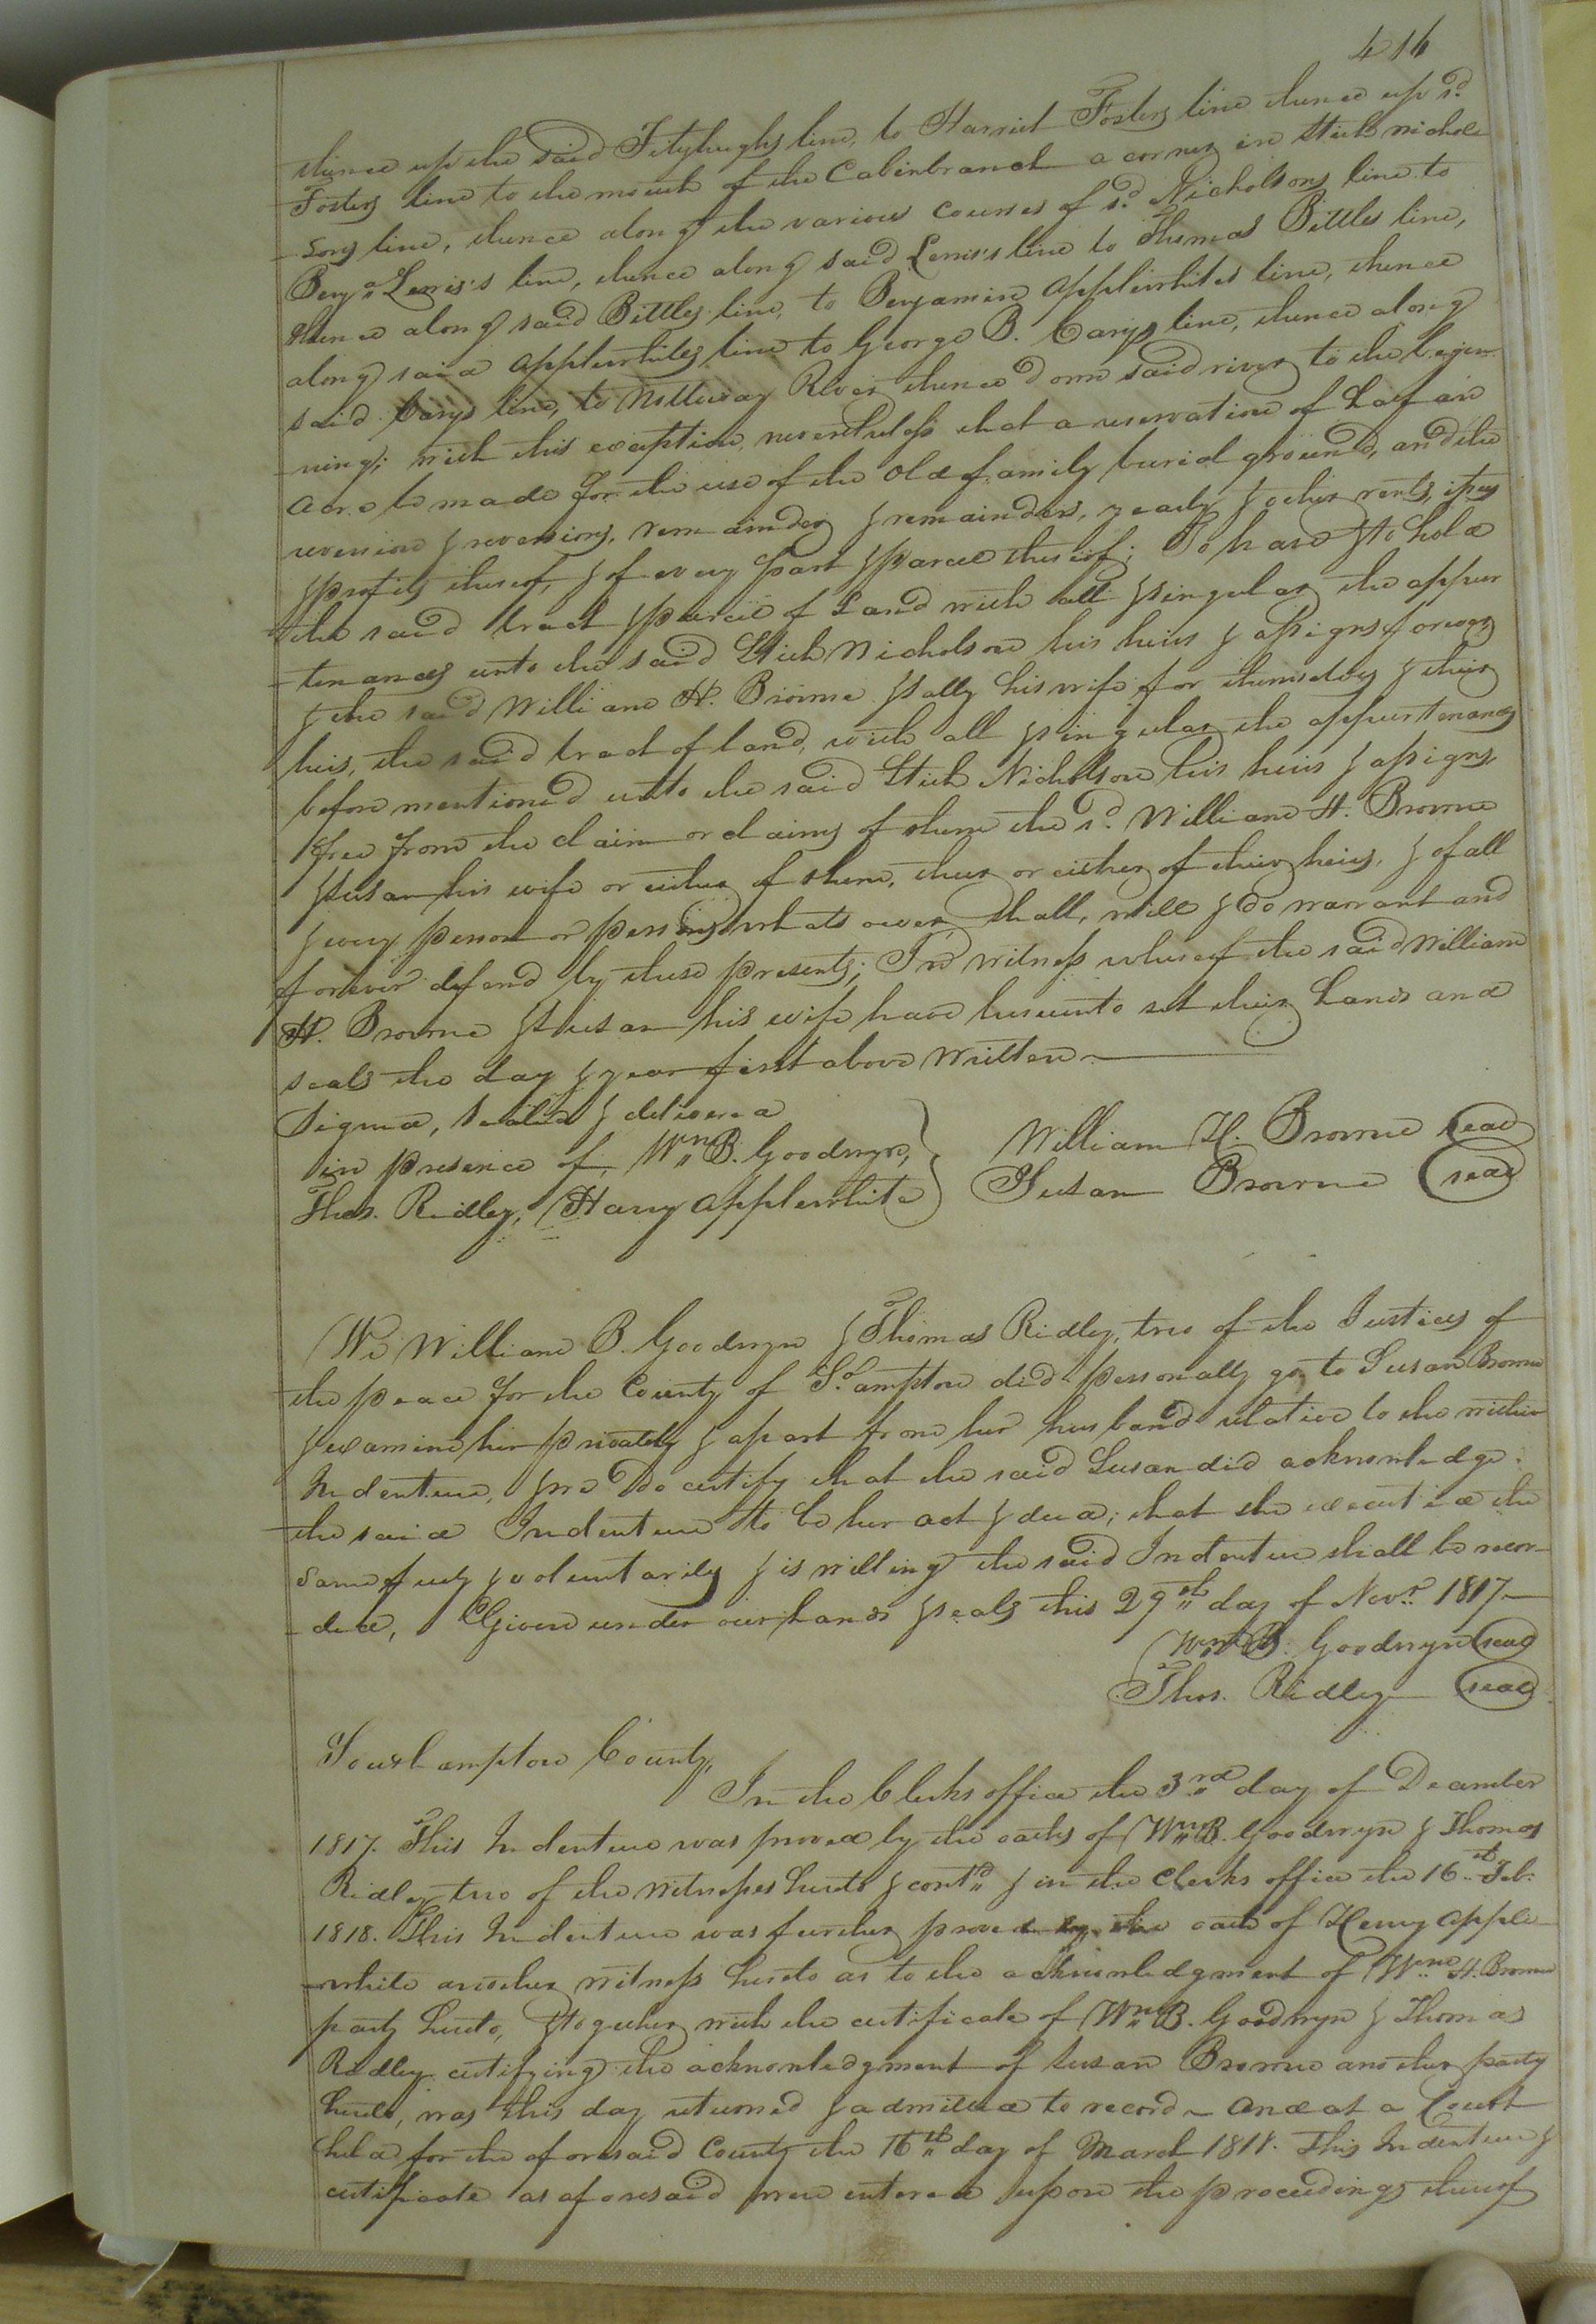 416
thence up the said Fitzhughs line, to Harriet Fosters line thence up sd.
Fosters line to the mouth of the Cabinbranch a corner in Stith Nichol
-sons line, thence along the various courses of sd. Nicholsons line to
Benja. Lewis's line, thence along said Lewis's line to Thomas Bittles line,
thence along said Bittles line, to Benjamin Applewhites line, thence
along said Applewhites line to George B. Carys line, thence along
said Carys line, to Nottoway River thence down said river to the begin-
-ning; with this exception nevertheless that a reservation of half an
acre be made for the use of the old family burial ground, and the
reversion & reversions, remainder & remainders, yearly & other rents, issues
& profits thereof, & of every part & parcel thereof; To have & to hold
the said tract & parcel of Land with all & singular the appur
-tenances unto the said Stith Nicholson his heirs & assigns forever
& the said William H. Browne & Sally his wife for themselves & their
heirs, the said tract of land, with all & singular the appurtenances
before mentioned unto the said Stith Nicholson his heirs & assigns
free from the claim or claims of them the sd. William H. Browne
& Susan his wife or either of them, their or either of their heirs, & of all
& every person or persons whatsoever shall, will & do warrant and
forever defend by these presents; In witness whereof the said William
H. Browne & Susan his wife have hereunto set their hands and
seals the day & year first above written
Signed, sealed & delivered
in presence of, Wm. B. Goodwyn,
Thos. Ridley, Harry Applewhite
William H. Browne seal
Susan Browne seal
We William B. Goodwyn & Thomas Ridley, two of the Justices of
the peace for the County of So.ampton did personally go to Susan Browne
& examine her privately & apart from her husband relative to the within
Indenture, & we do certify that the said Susan did acknowledge
the said Indenture to be her act & deed; that she executed the
same freely & voluntarily & is willing the said Indenture shall be recor-
-ded, Given under our hands & seals this 29th day of Novr. 1817
Wm. B. Goodwyn seal
Thos. Ridley seal
Southampton County,
In the Clerks office the 3rd day of December
1817. This Indenture was proved by the oaths of Wm. B. Goodwyn & Thomas
Ridley two of the witnesses hereto & contd. & in the Clerks office the 16th Feb:
1818. This Indenture was further proved by the oath of Henry Apple
-white another witness hereto as to the acknowledgment of Wm. H. Browne
party hereto, & together with the certificate of Wm. B. Goodwyn & Thomas
Ridley certifying the acknowledgment of Susan Browne another party
hereto, was this day returned & admitted to record - And at a Court
held for the aforesaid County the 16th day of March 1818. This Indenture &
certificate as aforesaid were entered upon the proceedings thereof